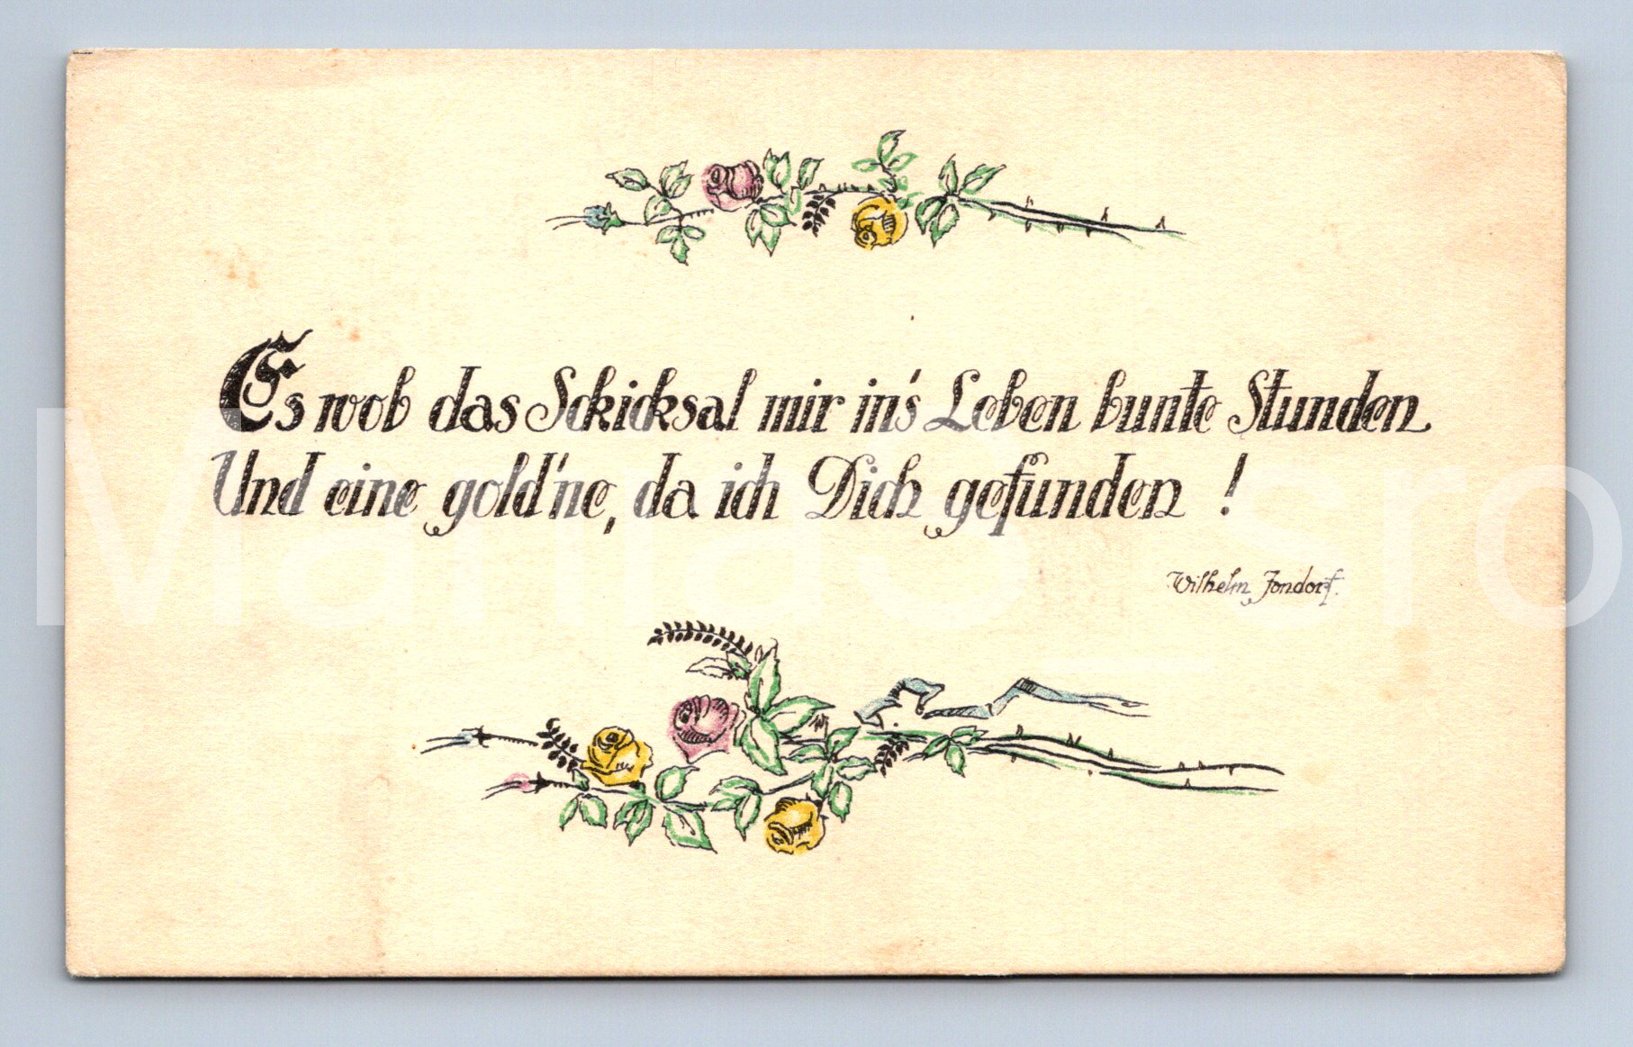 Es wob das Schicksal mir in's Leben bunte Stunden
Und eine gold'ne, da ich Dich gefunden!
Wilhelm Jondorf.